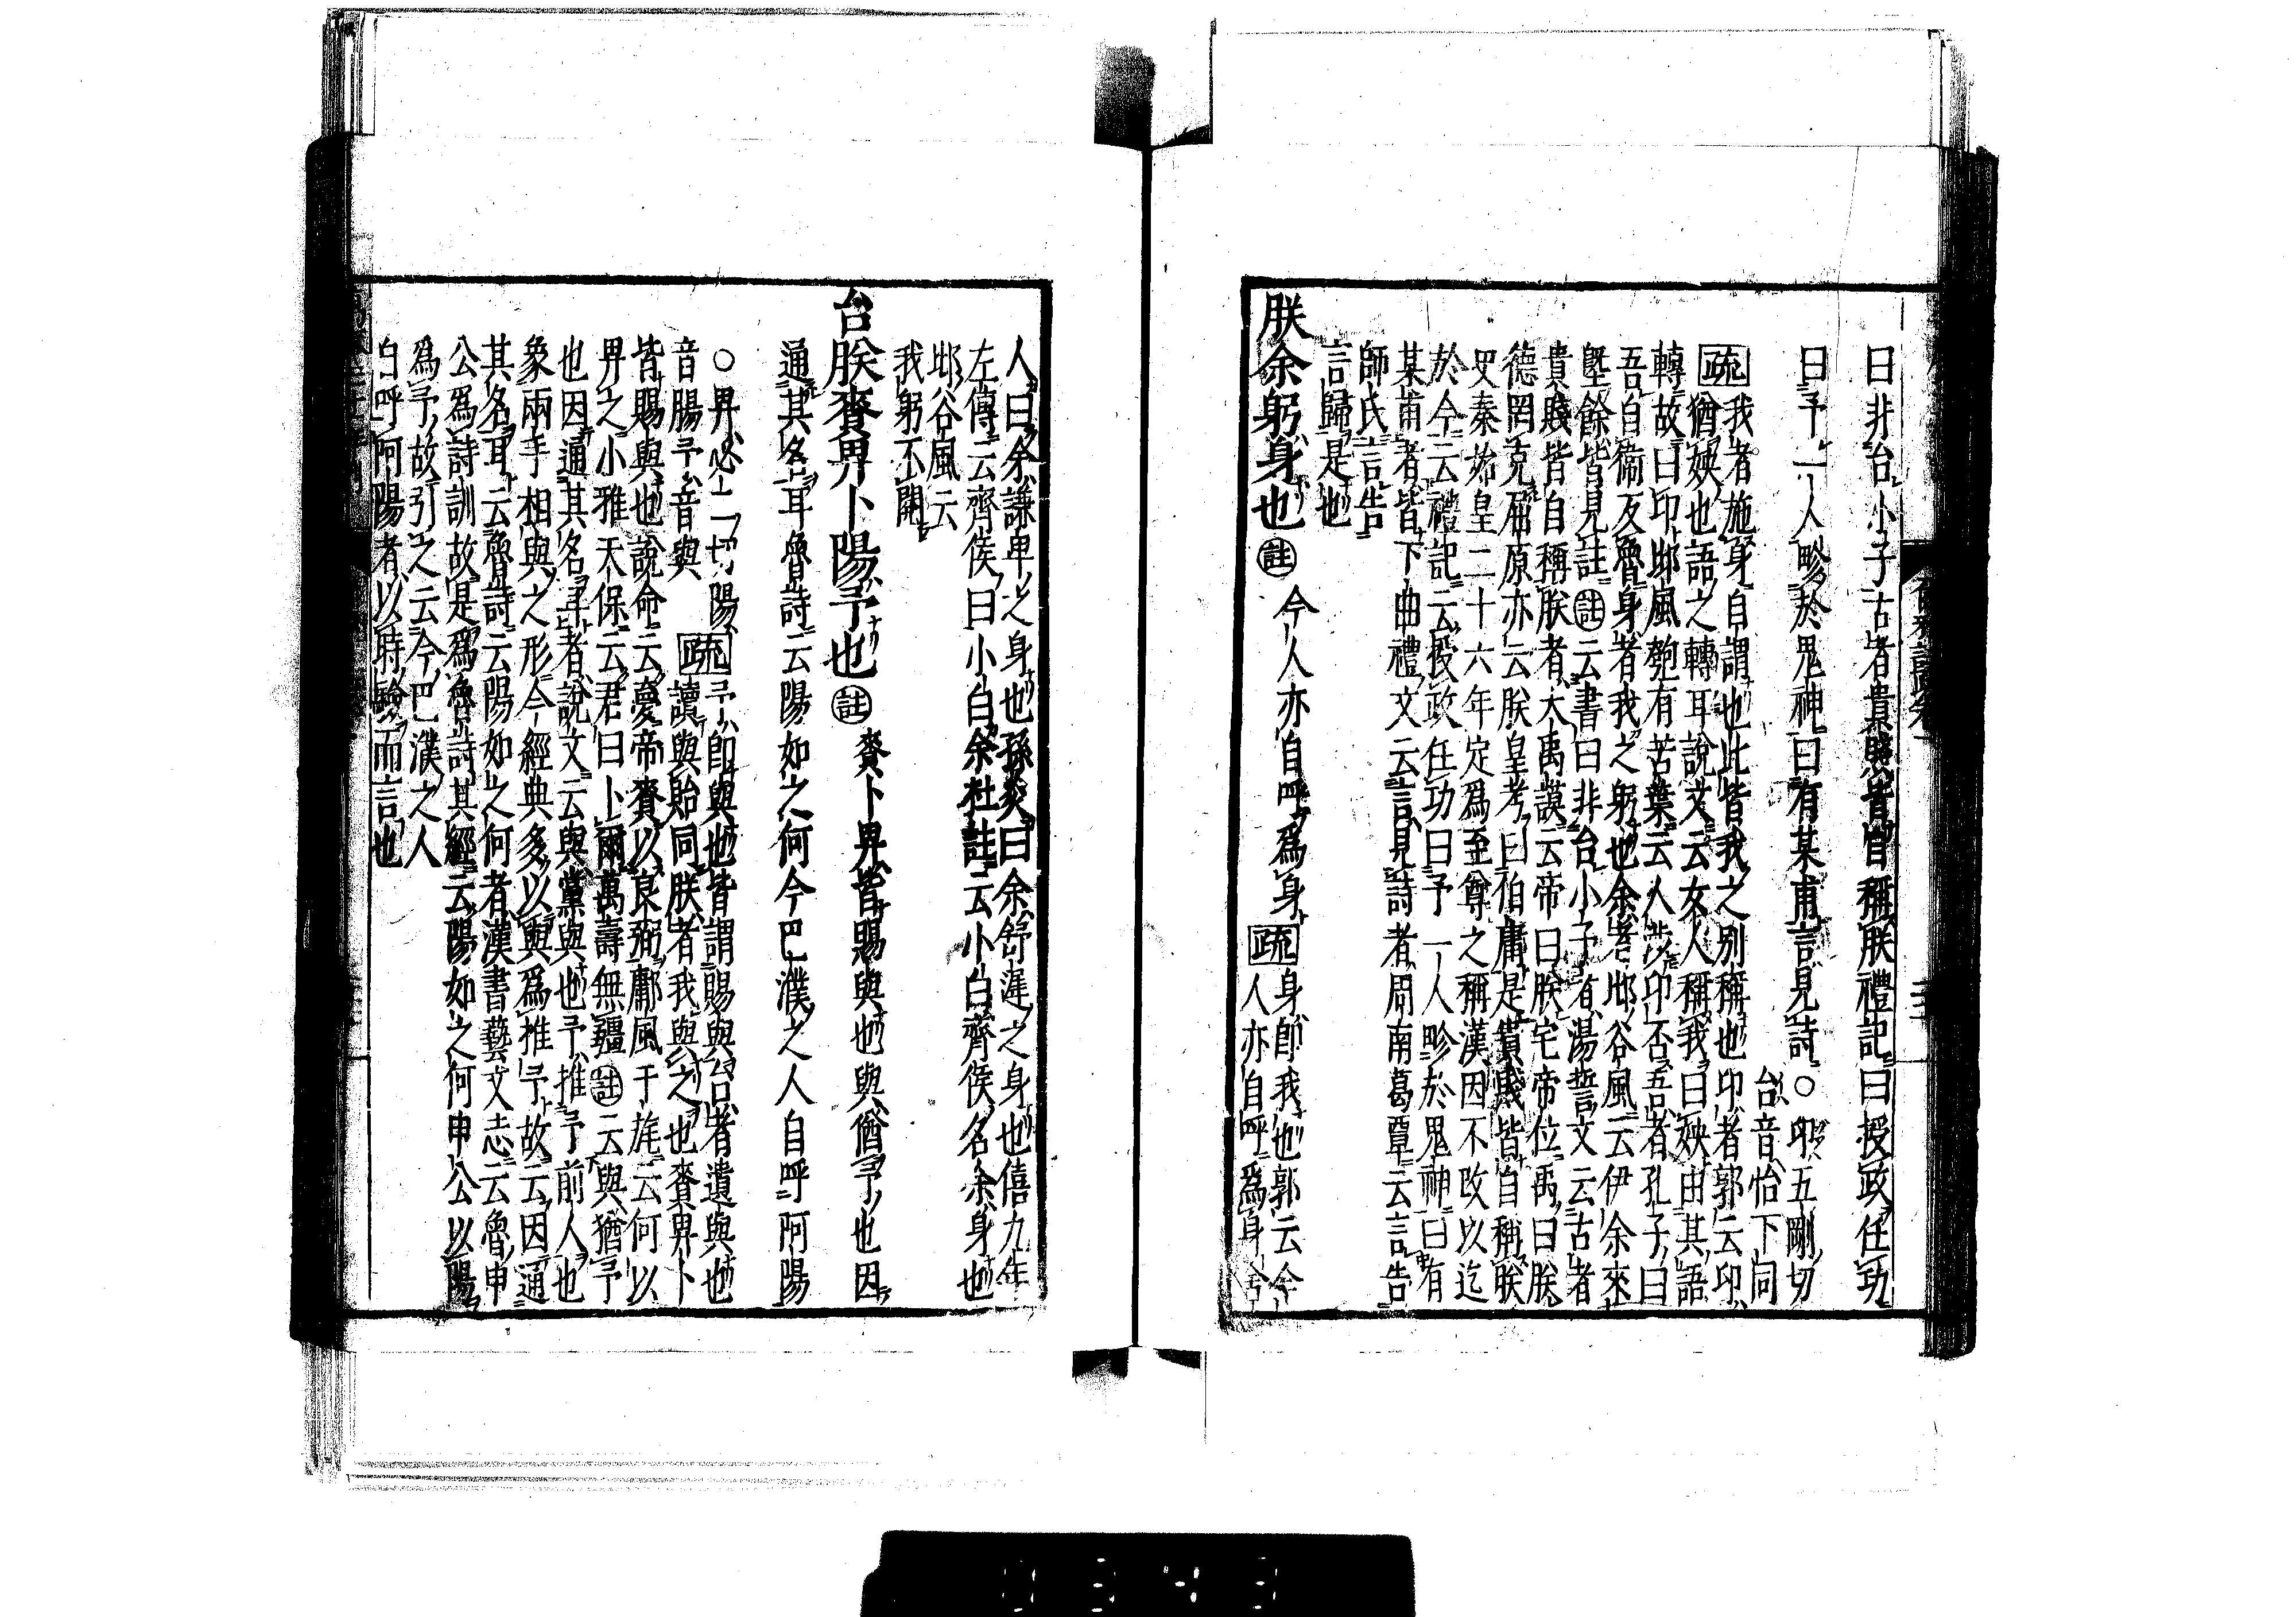 曰非台小子古者貴賤皆自稱朕禮記曰授政任功
曰予一人畛於鬼神曰有某甫言見詩○卬五剛切
台音怡下同
疏我者施身自謂也此皆我之別稱也卬者郭云卬
猶姎也語之轉耳說文云女人稱我曰姎由其語
轉故曰卬邶風匏有苦葉云人涉卬否吾者孔子曰
吾自衛反魯身者我之躬也余者邶谷風云伊余來
墍餘皆見註註云書曰非台小子者湯誓文云古者
貴賤皆自稱朕者大禹謨云帝曰朕宅帝位禹曰朕
德罔克屈原亦云朕皇考曰伯庸是貴賤皆自稱朕
史秦始皇二十六年定為至尊之稱漢因不改以迄
於今云禮記云授政任功曰予一人畛於鬼神曰有
某甫者皆下曲禮文云言見詩者周南葛覃云言告
師氏言告
言歸是也
朕余躬身也註今人亦自呼為身疏身即我也郭云今
人亦自呼為身舍
人曰余謙卑之身也孫炎曰余舒遲之身也僖九年
左傳云齊侯曰小白余杜註云小白齊侯名余身也
邶谷風云
我躬不閱
台朕賚畀卜陽予也註賚卜畀皆賜與也與猶予也因
通其名耳魯詩云陽如之何今巴濮之人自呼阿陽
○畀必二切陽
音賜予音與
疏予即與也皆謂賜與台者遺與也
讀與貽同朕者我與之也賚畀卜
皆賜與也說命云夢帝賚以良弼鄘風干旄云何以
畀之小雅天保云君曰卜爾萬壽無疆註云與猶予
也因通其名耳者說文云與黨與也予推予前人也
象兩手相與之形今經典多以與為推予故云因通
其名耳云魯詩云陽如之何者漢書藝文志云魯申
公為詩訓故是為魯詩其經云陽如之何申公以陽
為予故引之云今巴濮之人
自呼阿陽者以時驗而言也